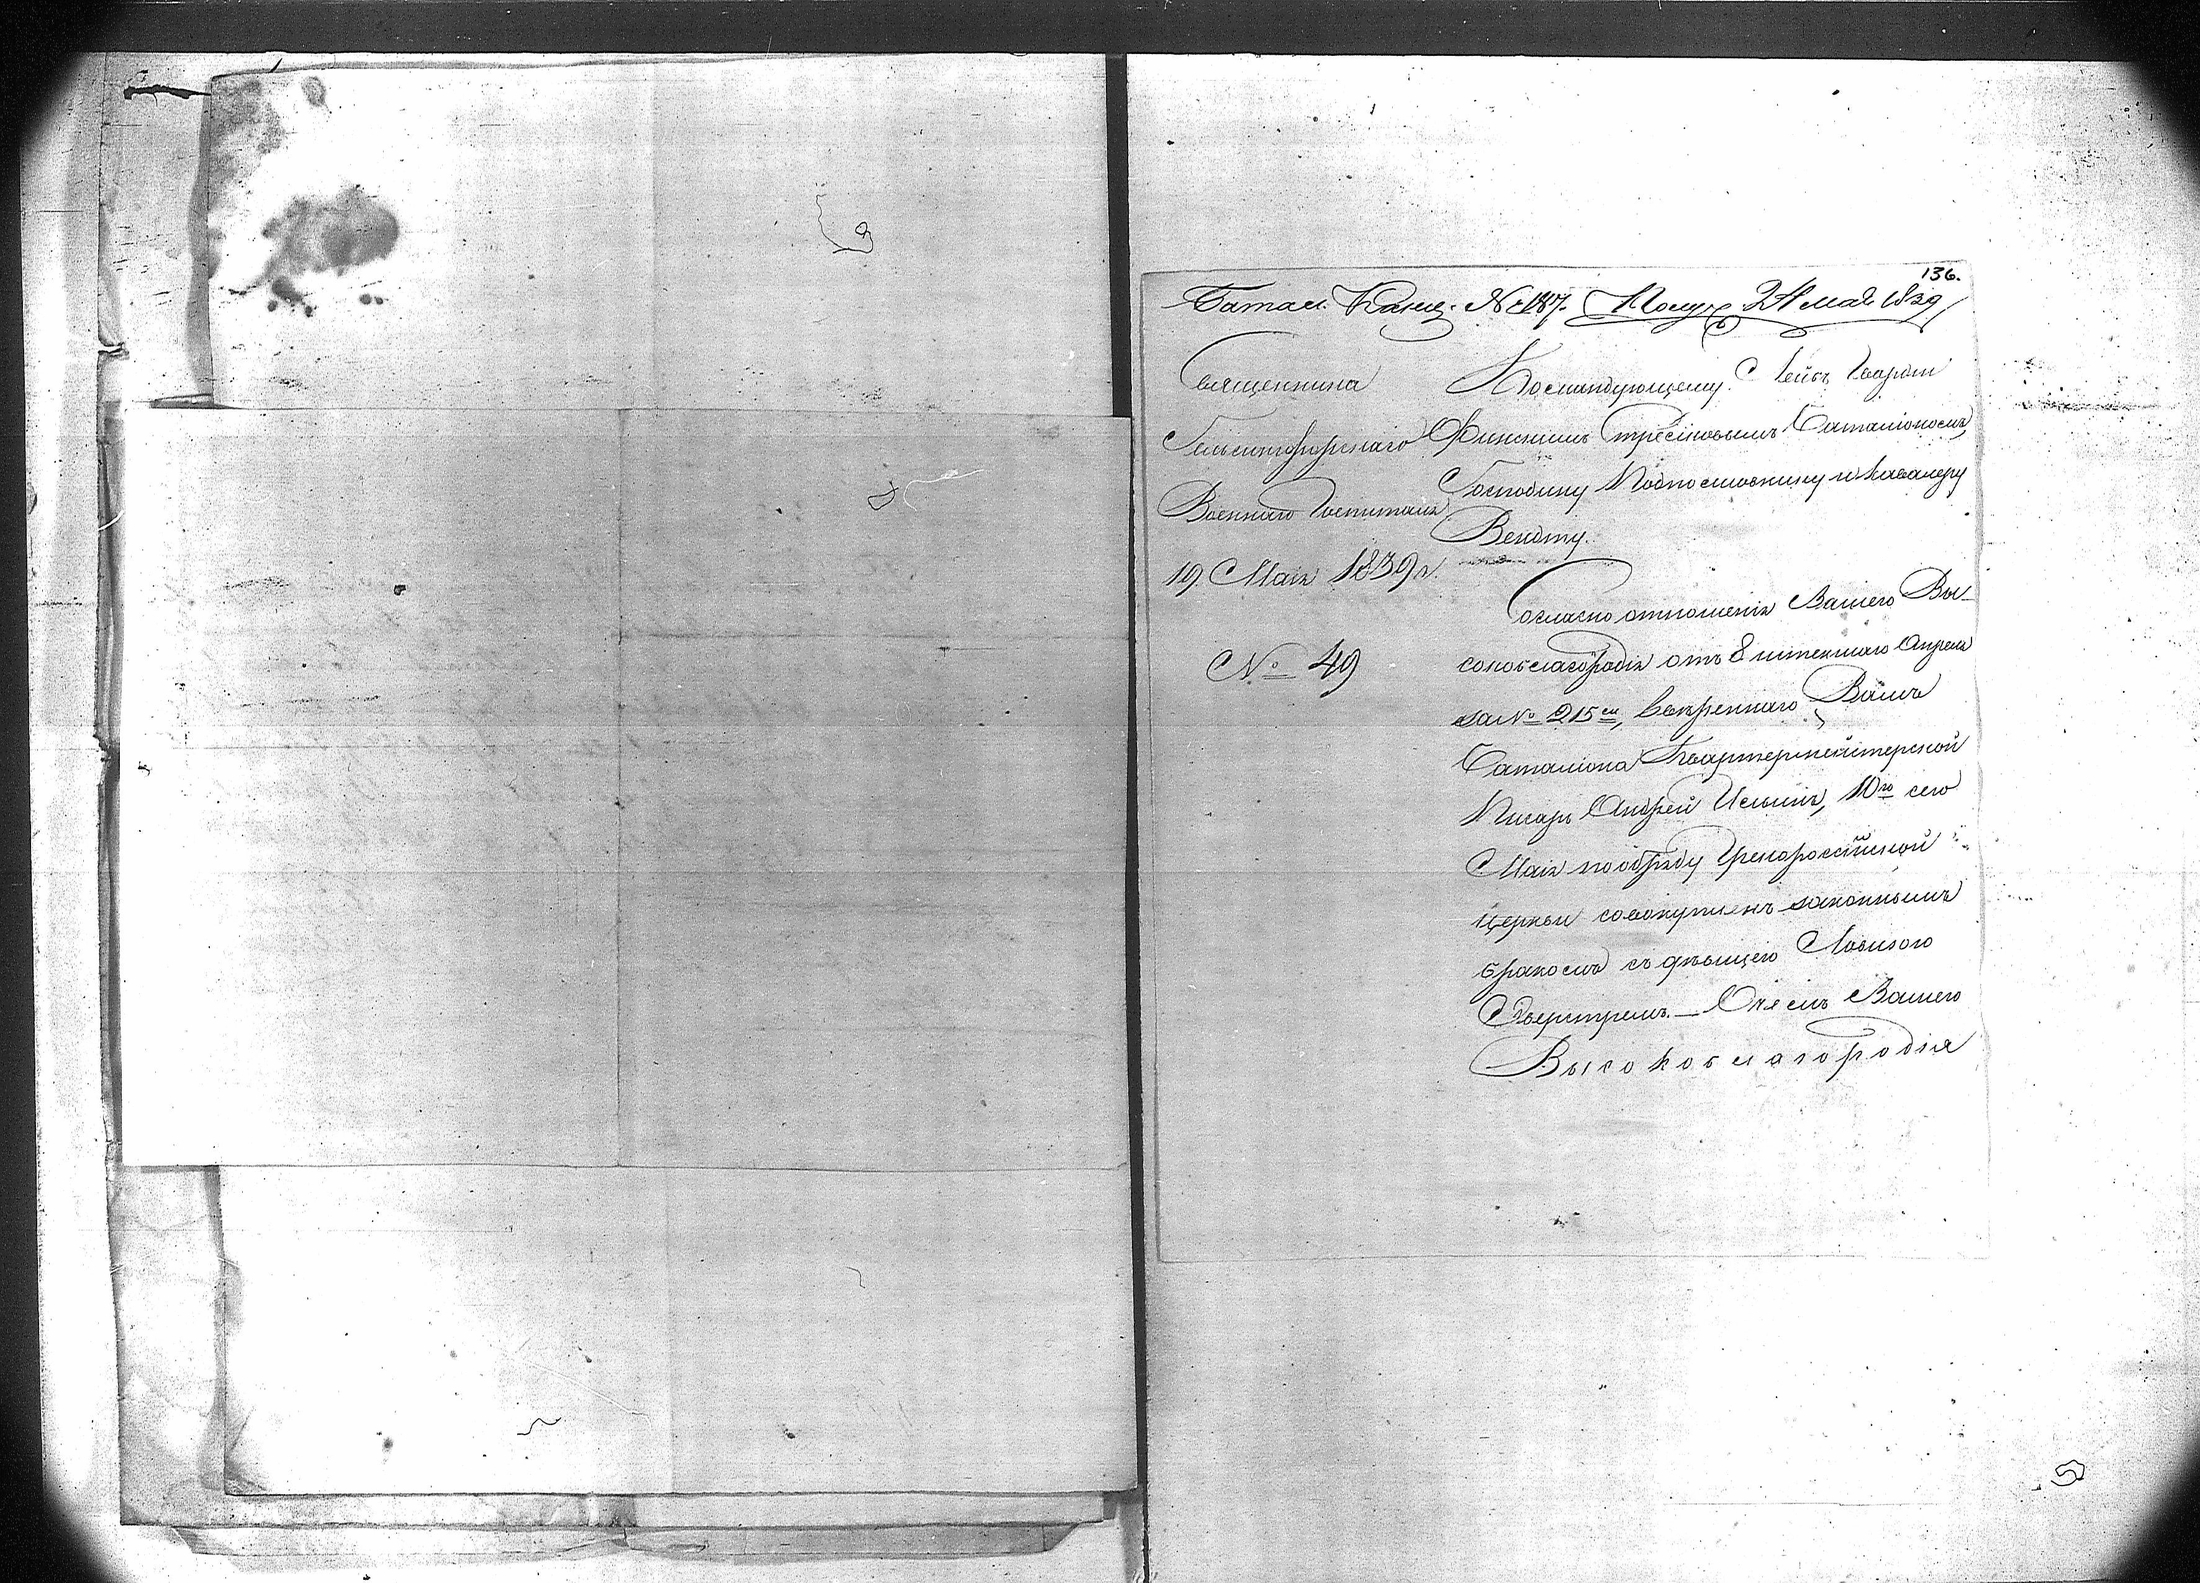 136.
Батал. Канц. № 187. Получ. 24 мая 1839
Священника
Гельсингфорскаго
Военнаго Госпиталя
19 Маія 1839 г.
№ 49
Командующему Лейбъ Гвардіи
Финскимъ Стрѣлковымъ Баталіономъ,
Господину Подполковнику и Кавалеру
Вендту.
Согласно отношенія Вашего Вы-
сокоблагородія отъ 8 истекшаго Апреля
за № 215ем, ввѣреннаго Вамъ
Баталіона Квартермейстерской
Писарь Андрей Ильинъ, 10го сего
Маія по обряду Грекороссійской
церкви совокупленъ законнымъ
бракомъ съ дѣвицею Ловизою
О чемъ Вашего
Высокоблагородія